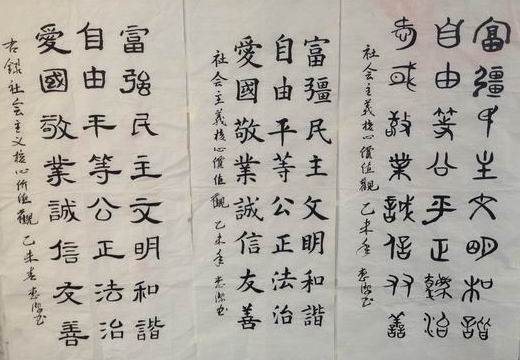 富彊民主文明和諧
自由等公平正治
愛國敬業誠信友善
社会主義核心價值觀 乙未冬 书
富彊民主文明和諧
自由平等公正法治
愛國敬業誠信友善
社会主義核心價值觀 乙未冬 书
富強民主文明和諧
自由平等公正法治
愛國敬業誠信友善
右錄社会主义核心价值觀 乙未 书